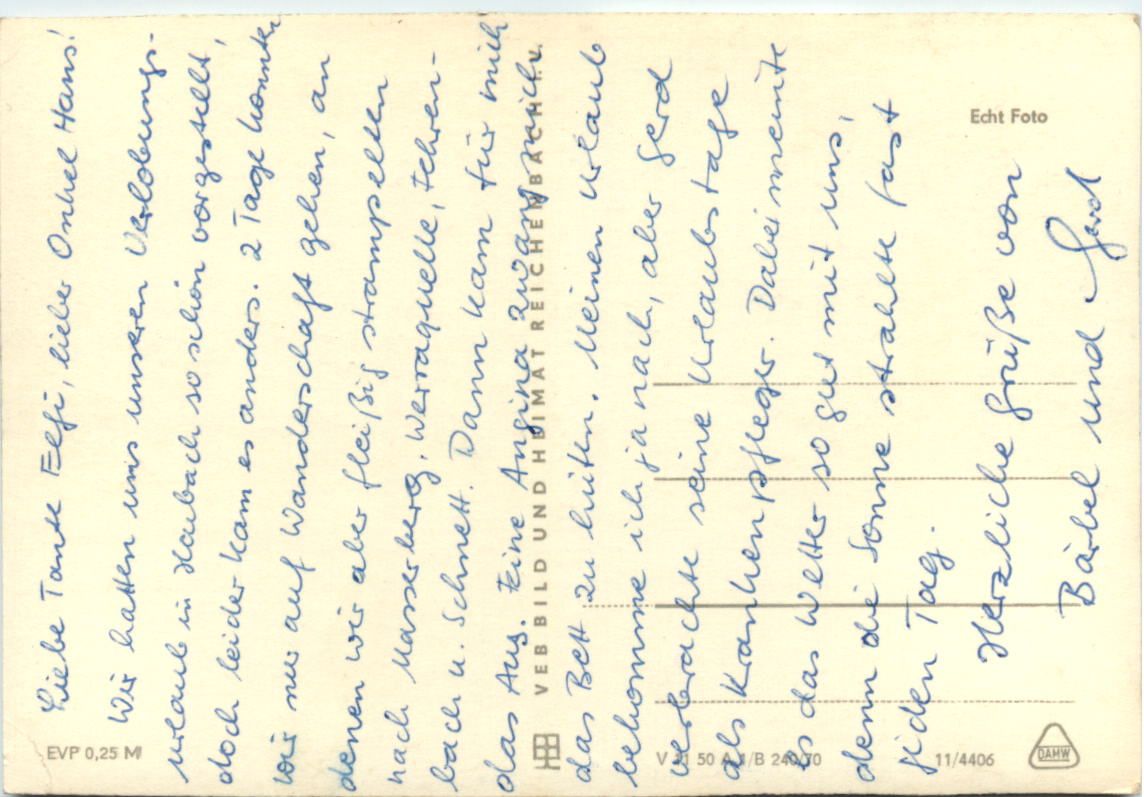 Liebe Tante Elfi, lieber Onkel Hans!
Wir hatten uns unseren Verlobungs-
urlaub in Heubach so schön vorgestellt,
doch leider kam es anders. 2 Tage konnten
wir nur auf Wanderschaft gehen, an
denen wir aber fleißig strampelten
nach Masserberg, Werraquelle, Fehren-
bach u. Schnett. Dann kam für mich
das Aus. Eine Angina zwang mich,
das Bett zu hüten. Meinen Urlaub
bekomme ich ja nach, aber Gerd
verbrachte seine Urlaubstage
als Krankenpfleger. Dabei meinte
es das Wetter so gut mit uns,
denn die Sonne strahlte fast
jeden Tag.
Herzliche Grüße von
Bärbel und Gerd
Echt Foto
VEB BILD UND HEIMAT REICHENBACH I. V.
EVP 0,25 M
V 11 50 A 1/B 240/70
11/4406
DAMW